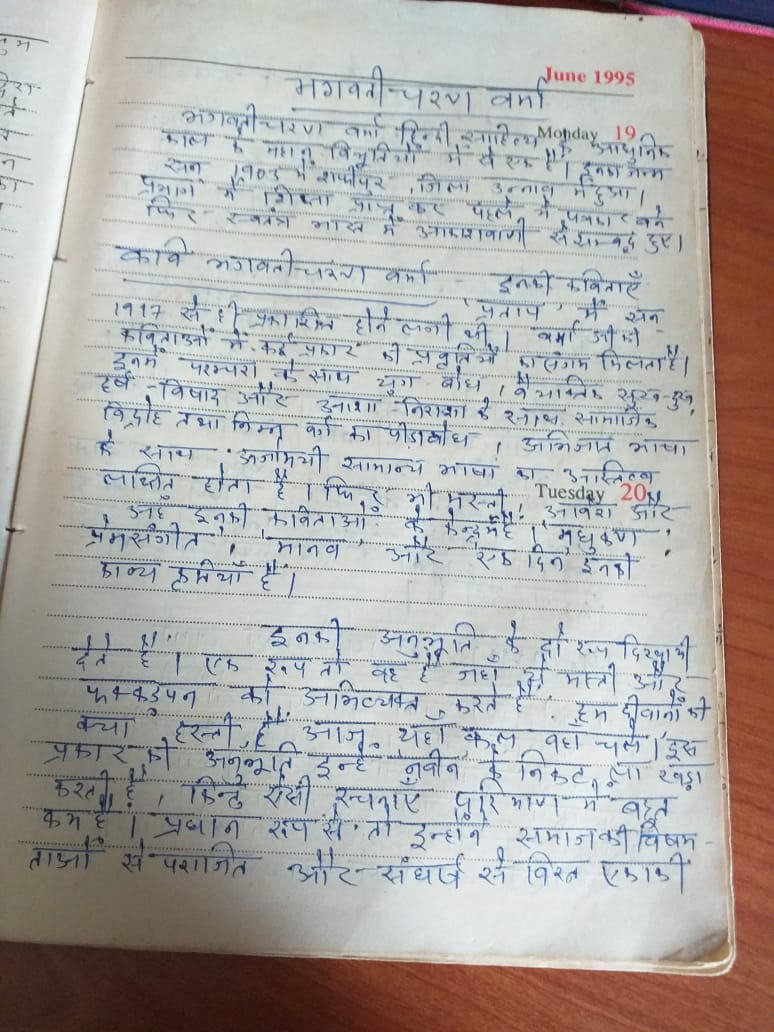 June 1995
भगवतीचरण वर्मा
Monday 19
भगवतीचरण वर्मा हिन्दी साहित्य के आधुनिक
काल के महान विभूतियों में से एक हैं। इनका जन्म
सन् 1903 में शफीपुर, जिला उन्नाव में हुआ।
प्रयाग में शिक्षा प्राप्त कर पहले में पत्रकार बने
फिर स्वतंत्र भारत में आकाशवाणी से सम्बद्ध हुए।
कवि भगवतीचरण वर्मा - इनकी कविताएँ
'प्रताप' में सन्
1917 से ही प्रकाशित होने लगी थी। वर्मा जी की
कविताओं में कई प्रकार की प्रवृतियों का संगम मिलता है।
इनमें परम्परा के साथ युग बोध, वैयक्तिक सुख-दुख,
हर्ष-विषाद और आशा-निराशा के साथ सामाजिक
विद्रोह तथा निम्न वर्ग का पीड़ाबोध, अभिजात भाषा
के साथ अजामयी सामान्य भाषा का अस्तित्व
लाक्षित होता है। फिर भी मस्ती, आवेश और
Tuesday 20
अहं इनकी कविताओं के केन्द्र में है। 'मधुकण',
प्रेमसंगीत', 'मानव' और एक दिन इनकी
काव्य कृतियाँ हैं।
इनकी अनुभूति के दो रूप दिखायी
देते हैं। एक रूप तो वह है जहाँ ये मस्ती और
फक्कड़पन को अभिव्यक्त करते हैं - हम दीवानों की
क्या हस्ती है आज यहाँ कल वहाँ चले। इस
प्रकार की अनुभूति इन्हें नवीन के निकट ला खड़ा
करती है, किन्तु ऐसी रचनाएँ परिमाण में बहुत
कम हैं। प्रधान रूप से तो इन्होंने समाज की विषम-
ताओं से पराजित और संघर्ष से विरत एकाकी